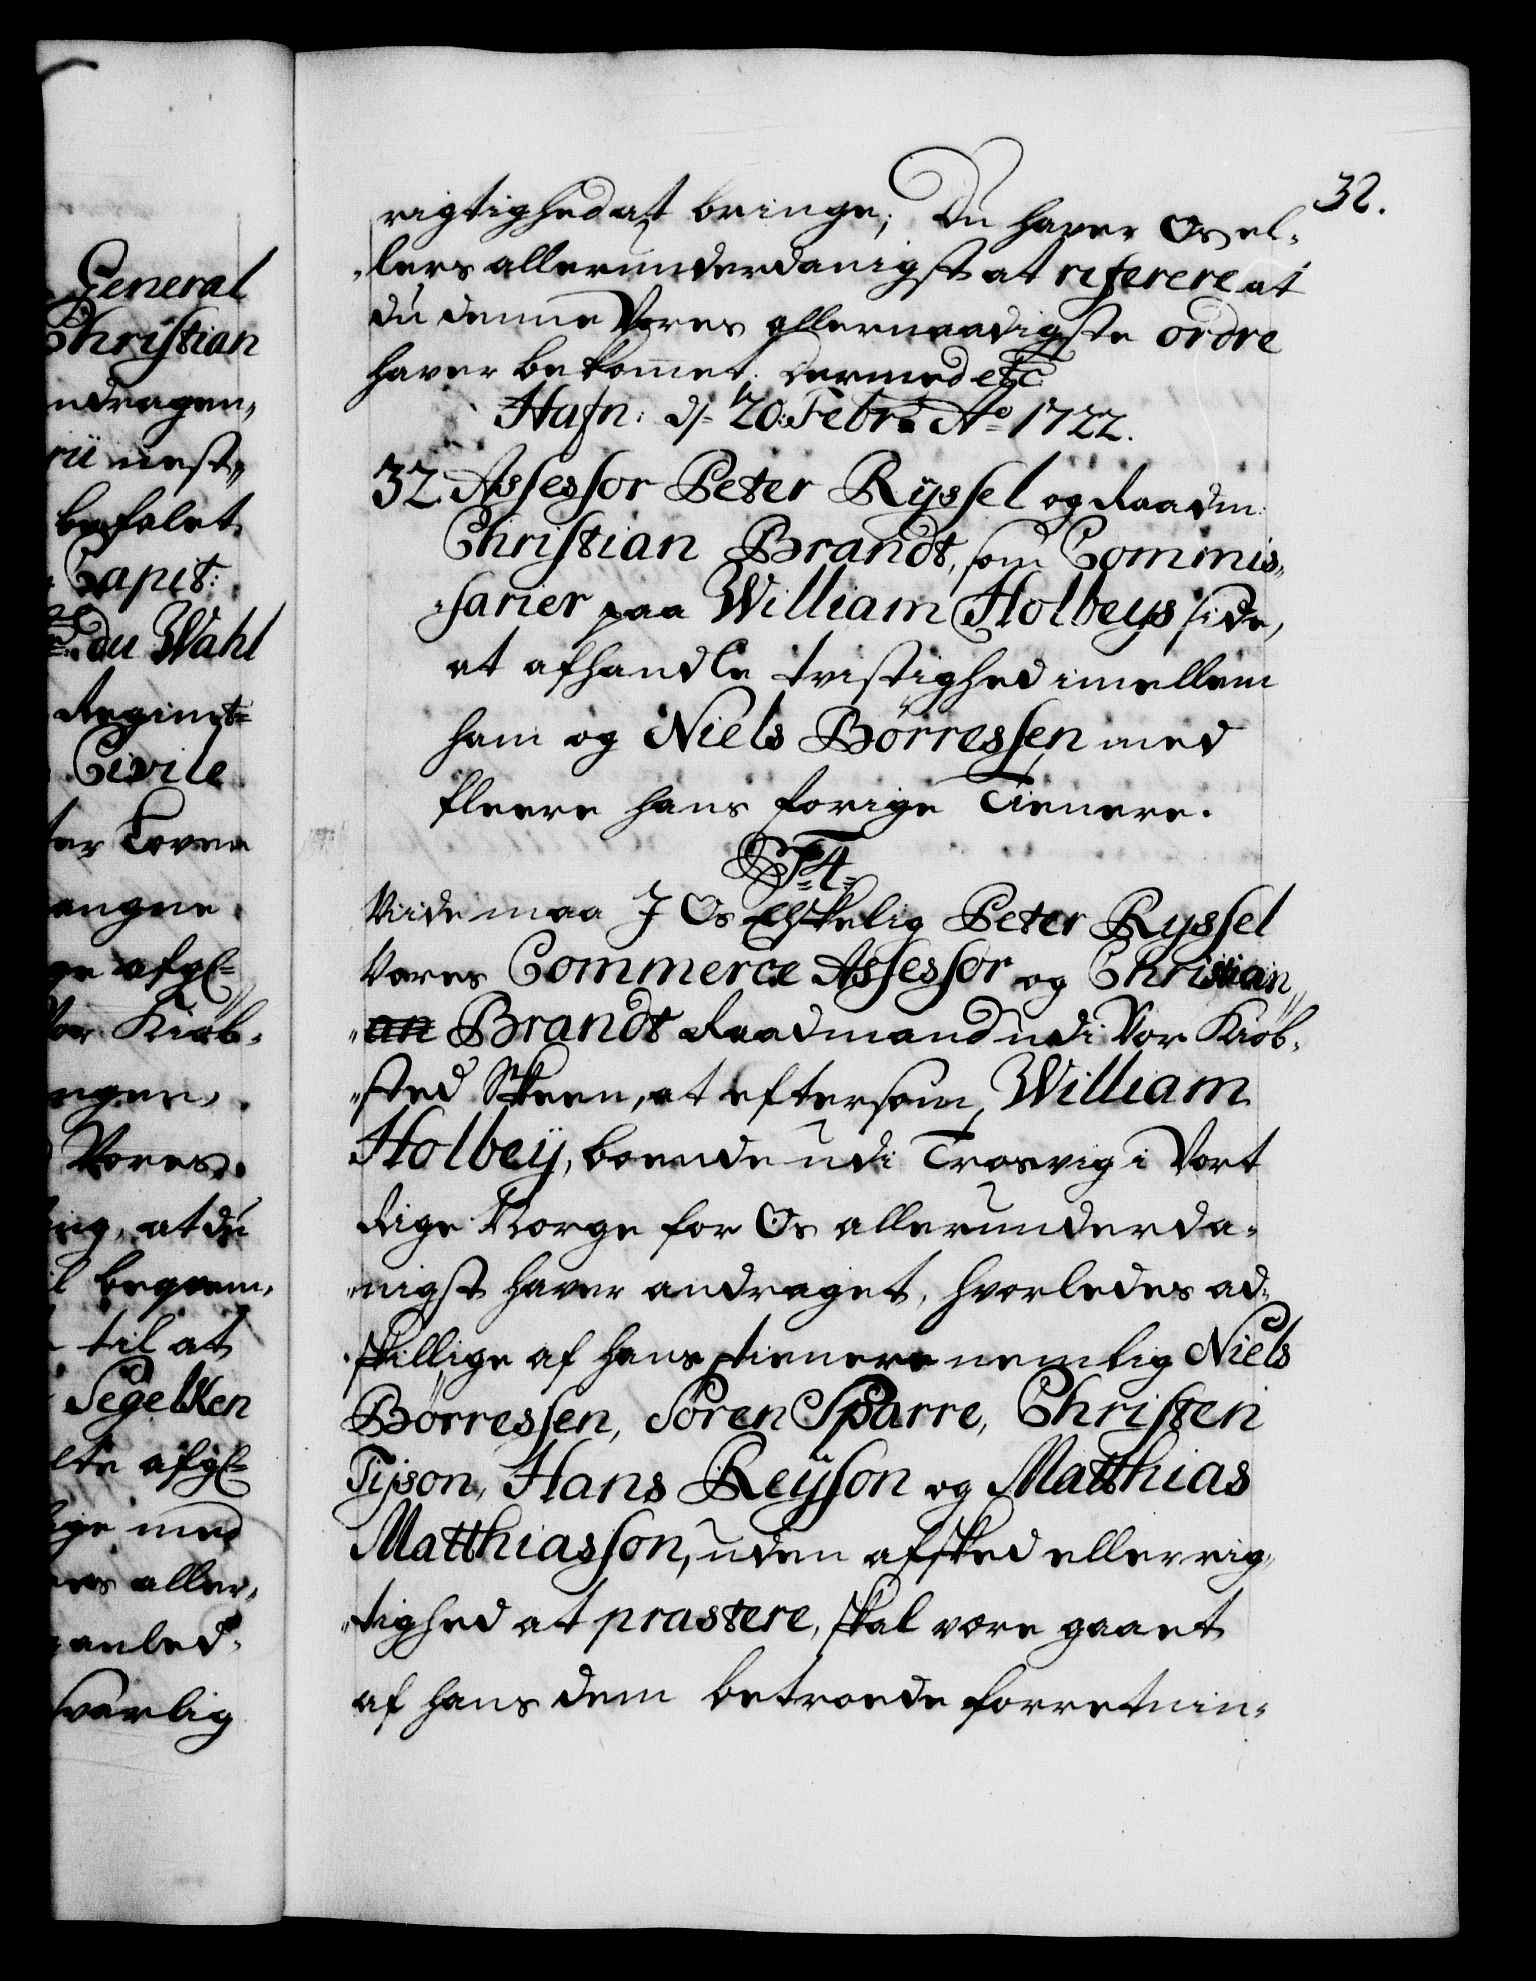 General
Christian
ndragen,
rii nest„
befalet
Capit:
du Wahl
Regimt=
Civile
ter Coven
angne
ge afg=
Vor Kiøb-
ngen,
Vores
ing, at du
l beqvem,
til at
Segelken
lte afg=
ige med
ers aller-
anled-
svarlig
32.
rigtighed at bringe; Du haver Os el-
-lers allerunderdanigst at referere at
du denne Vores allernaadigste ordre
haver bekomet. Dermed etc
Hafn: d/- 20: Febr: Ao 1722.
32 Assessor Peter Ryssel og Raadm:
Christian Brandt, som Commis„
„sarier paa William Holbeys side,
at afhandle tvistighed imellem
ham og Niels Börressen med
fleere hans forige Tienere.
F=4=
Viide maa J Os Elskelig Peter Ryssel
Vores Commerce Assessor og Christian„
„an Brandt Raadmand udi Vor Kiøb-
„sted Skeen, at eftersom William
Holbey, boende udi Trosvig i Vort
Rige Norge for Os allerunderda-
„nigst haver andraget, hvorledes ad-
„skillige af hans tienere nemlig Niels
Börressen, Sören Sparre, Christen
Tijson, Hans Reijson og Matthias
Matthiasson, uden afsked eller rig-
„tighed at præstere, skal være gaaet
af hans dem betroede forretnin-